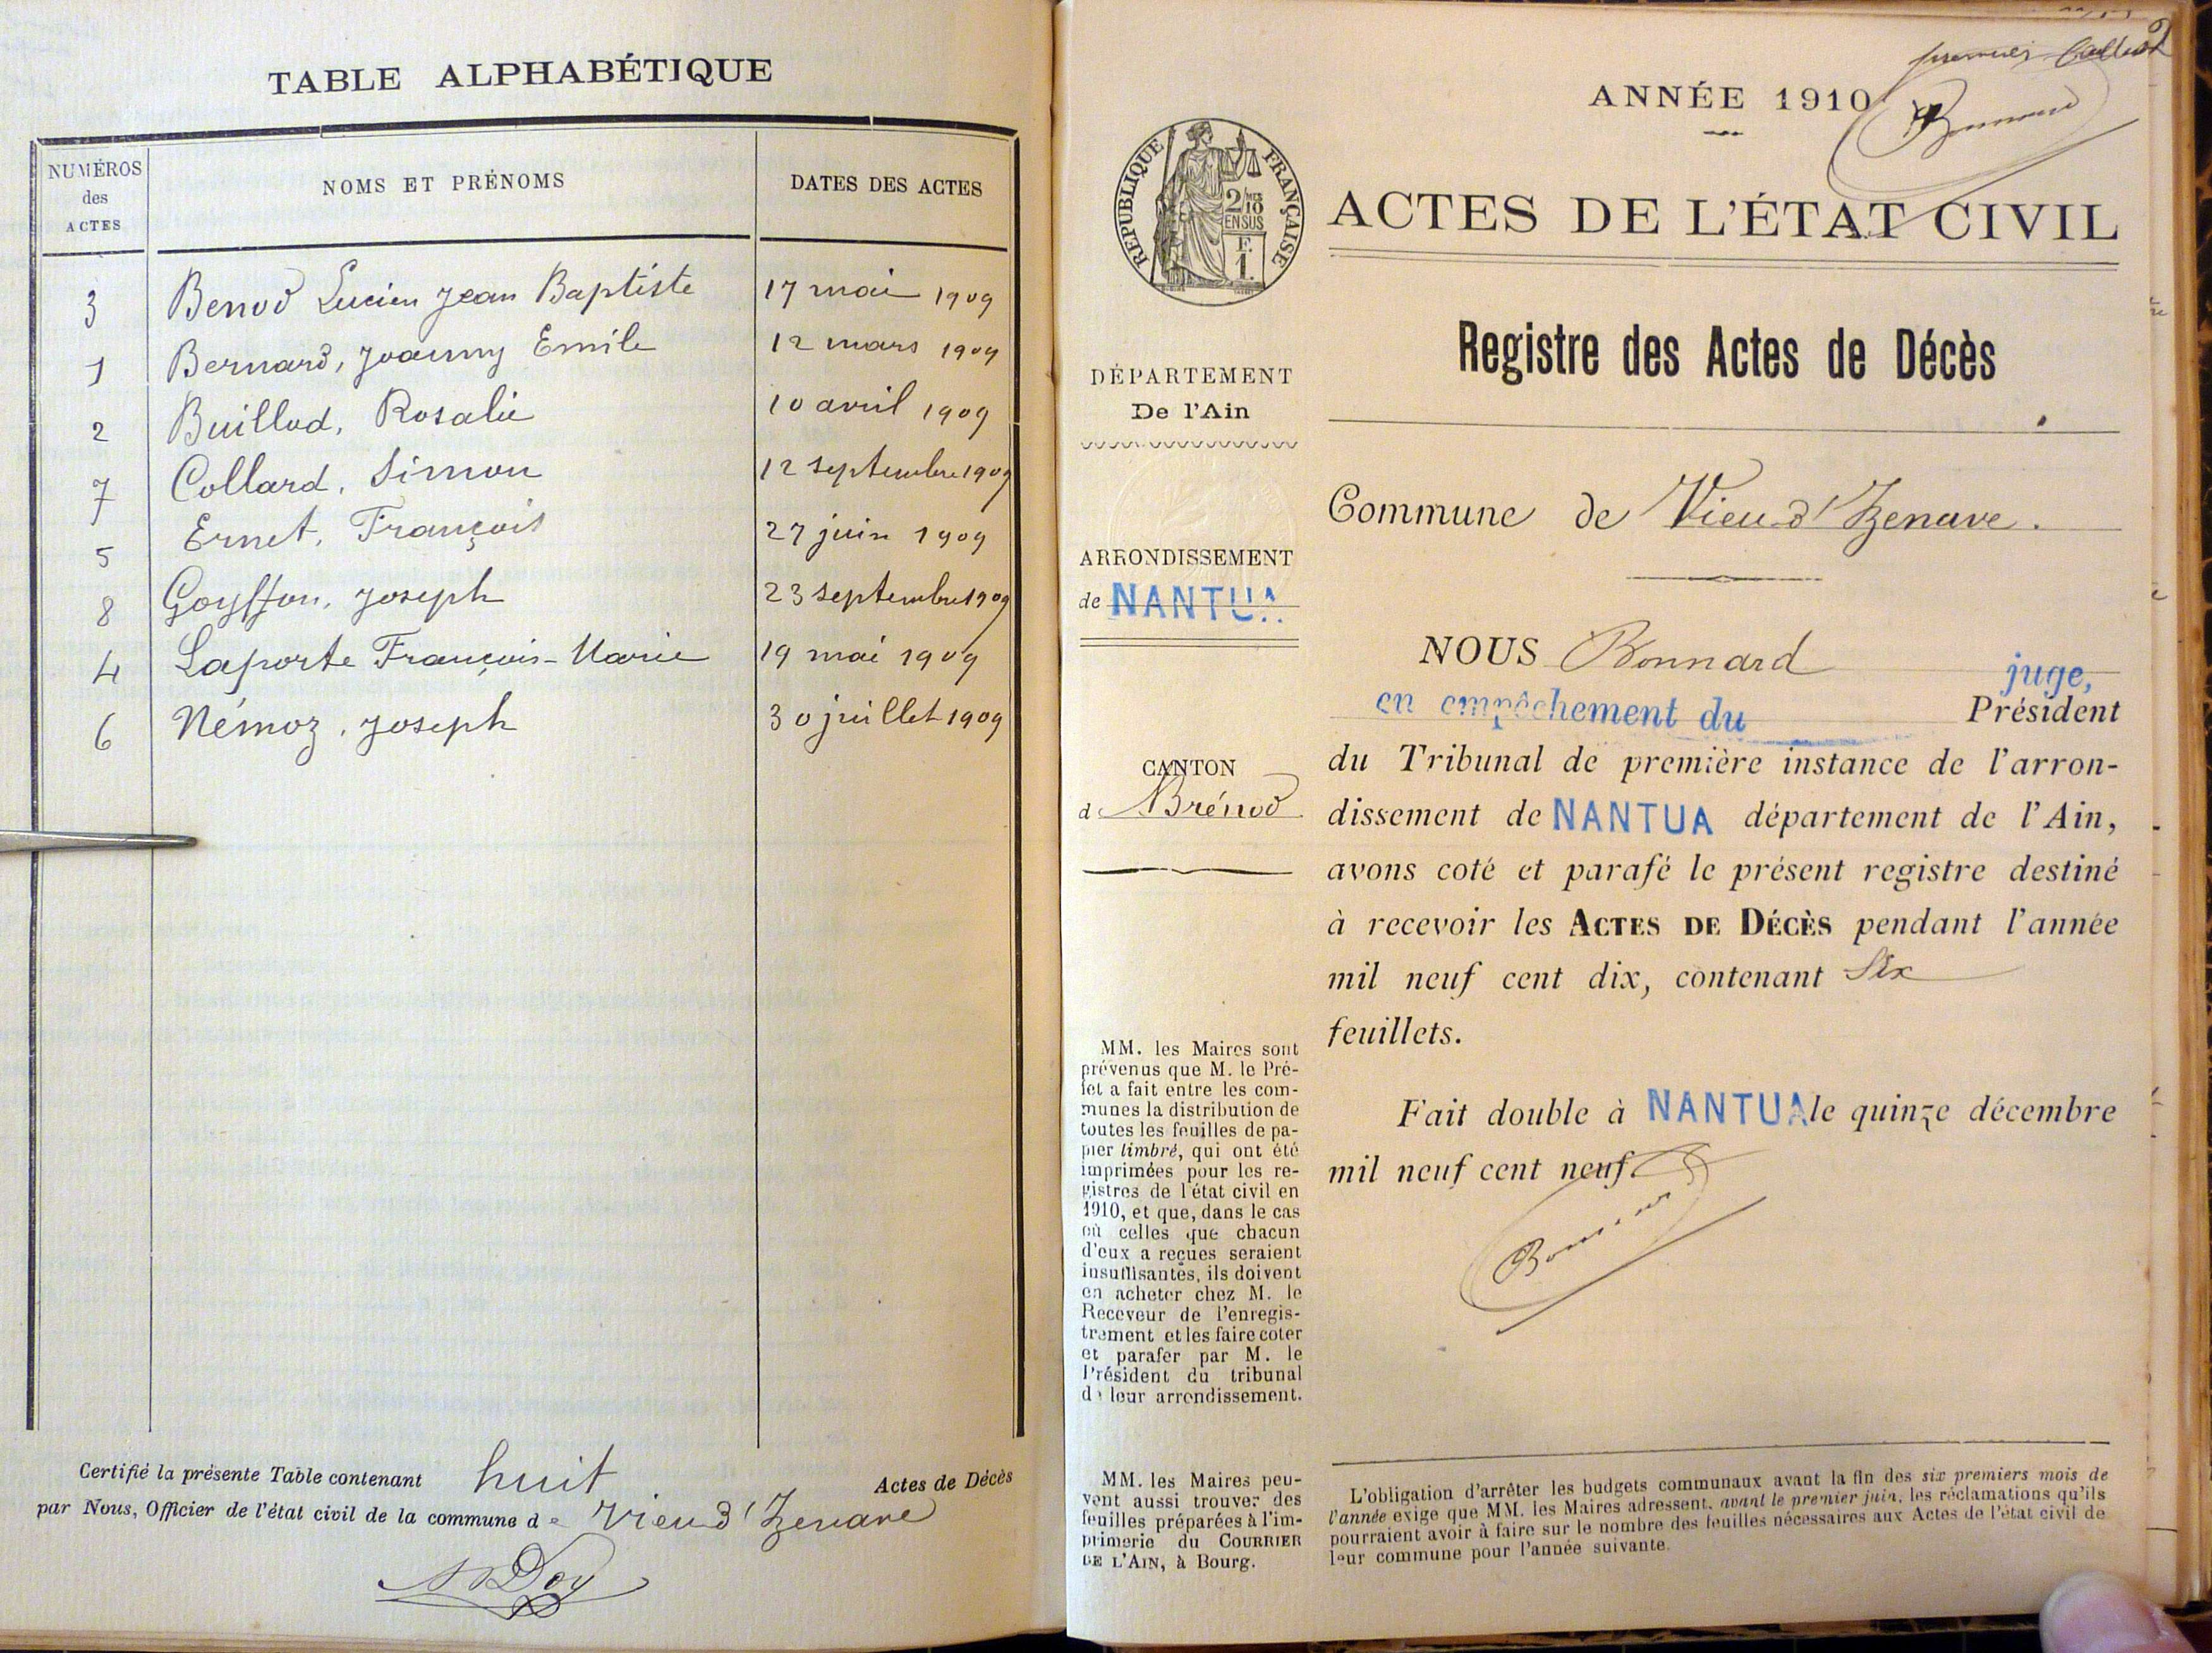 TABLE ALPHABÉTIQUE
NUMÉROS des ACTES NOMS ET PRÉNOMS DATES DES ACTES
3 Benod Lucien Jean Baptiste 17 mai 1909
1 Bernard, Joanny Emile 12 mars 1909
2 Buillod, Rosalie 10 avril 1909
7 Collard, Simon 12 septembre 1909
5 Ernet, François 27 juin 1909
8 Goyffon, Joseph 23 septembre 1909
4 Laporte François-Marie 19 mai 1909
6 Némoz, Joseph 30 juillet 1909
Certifié la présente Table contenant huit Actes de Décès
par Nous, Officier de l'état civil de la commune de Vieu d'Izenave
premier
Bonnard
ANNÉE 1910
RÉPUBLIQUE FRANÇAISE
2/10
EN SUS
F.
1.
ACTES DE L'ÉTAT CIVIL
Registre des Actes de Décès
DÉPARTEMENT
De l'Ain
ARRONDISSEMENT
de NANTUA
CANTON
d Brénod
MM. les Maires sont
prévenus que M. le Pré-
fet a fait entre les com-
munes la distribution de
toutes les feuilles de pa-
pier timbré, qui ont été
imprimées pour les re-
gistres de l'état civil en
1910, et que, dans le cas
où celles que chacun
d'eux a reçues seraient
insuffisantes, ils doivent
en acheter chez M. le
Receveur de l'enregis-
trement et les faire coter
et parafer par M. le
Président du tribunal
de leur arrondissement.
MM. les Maires peu-
vent aussi trouver des
feuilles préparées à l'im-
primerie du COURRIER
DE L'AIN, à Bourg.
Commune de Vieu d'Izenave.
NOUS Bonnard juge,
en empêchement du Président
du Tribunal de première instance de l'arron-
dissement de NANTUA département de l'Ain,
avons coté et parafé le présent registre destiné
à recevoir les ACTES DE DÉCÈS pendant l'année
mil neuf cent dix, contenant Six
feuillets.
Fait double à NANTUA le quinze décembre
mil neuf cent neuf.
Bonnard
L'obligation d'arrêter les budgets communaux avant la fin des six premiers mois de
l'année exige que MM. les Maires adressent, avant le premier juin, les réclamations qu'ils
pourraient avoir à faire sur le nombre des feuilles nécessaires aux Actes de l'état civil de
leur commune pour l'année suivante.